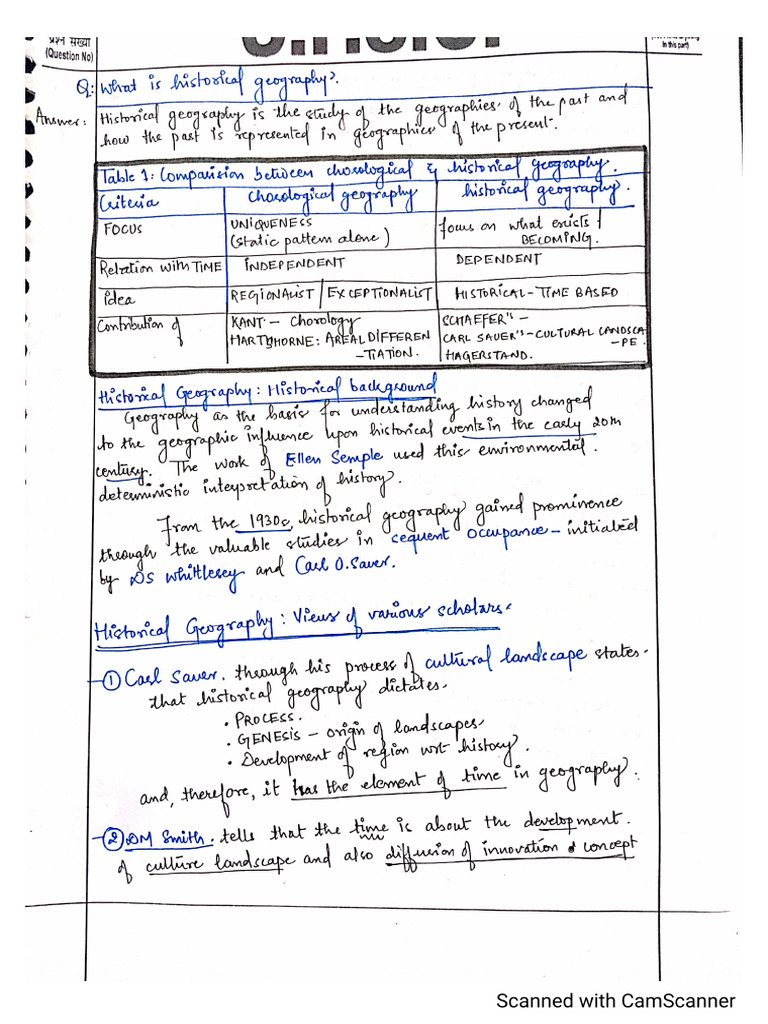 प्रश्न संख्या
(Question No)
in this part)
Q: What is historical geography?
Answer: Historical geography is the study of the geographies of the past and
how the past is represented in geographies of the present.
Table 1: Comparision between chorological & historical geography.
Criteria chorological geography historical geography.
FOCUS UNIQUENESS focus on what exists &
(static pattern alone) BECOMING.
Relation with TIME INDEPENDENT DEPENDENT
idea REGIONALIST / EXCEPTIONALIST HISTORICAL - TIME BASED
Contribution of KANT - Chorology SCHAEFER'S -
HARTSHORNE: AREAL DIFFEREN CARL SAUER'S - CULTURAL LANDSCA
-TIATION. -PE.
HAGERSTAND.
Historical Geography: Historical background
Geography as the basis for understanding history changed
to the geographic influence upon historical events in the early 20th
century. The work of Ellen Semple used this environmental
deterministic interpretation of history.
From the 1930s, historical geography gained prominence
through the valuable studies in sequent occupance - initiated
by DS Whittlesey and Carl O. Sauer.
Historical Geography: Views of various scholars.
① Carl Sauer. through his process of cultural landscape states.
that historical geography dictates.
• PROCESS.
• GENESIS - origin of landscapes.
• Development of region wrt history.
and, therefore, it has the element of time in geography.
② DM Smith. tells that the time is about the development.
of culture landscape and also diffusion of innovation & concept
Scanned with CamScanner